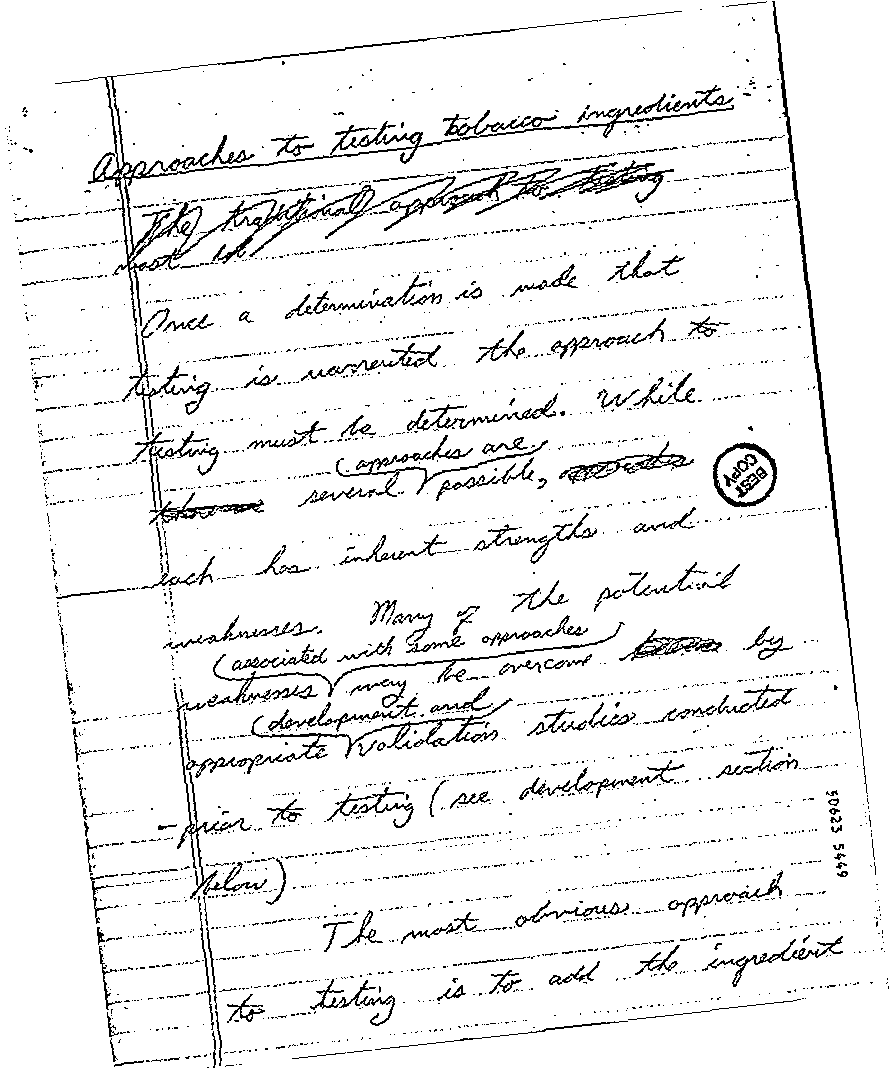 Approaches to testing tobacco ingredients
The traditional approach to testing
most
Once a determination is made that
testing is warrented the approach to
testing must be determined. While
approaches are
several possible,
each has inherent strengths and
weaknesses. Many of the potential
associated with some approaches
weaknesses may be overcome by
development and
appropriate validation studies conducted
prior to testing (see development section
below)
The most obvious approach
to testing is to add the ingredient
BEST COPY
50623 5449